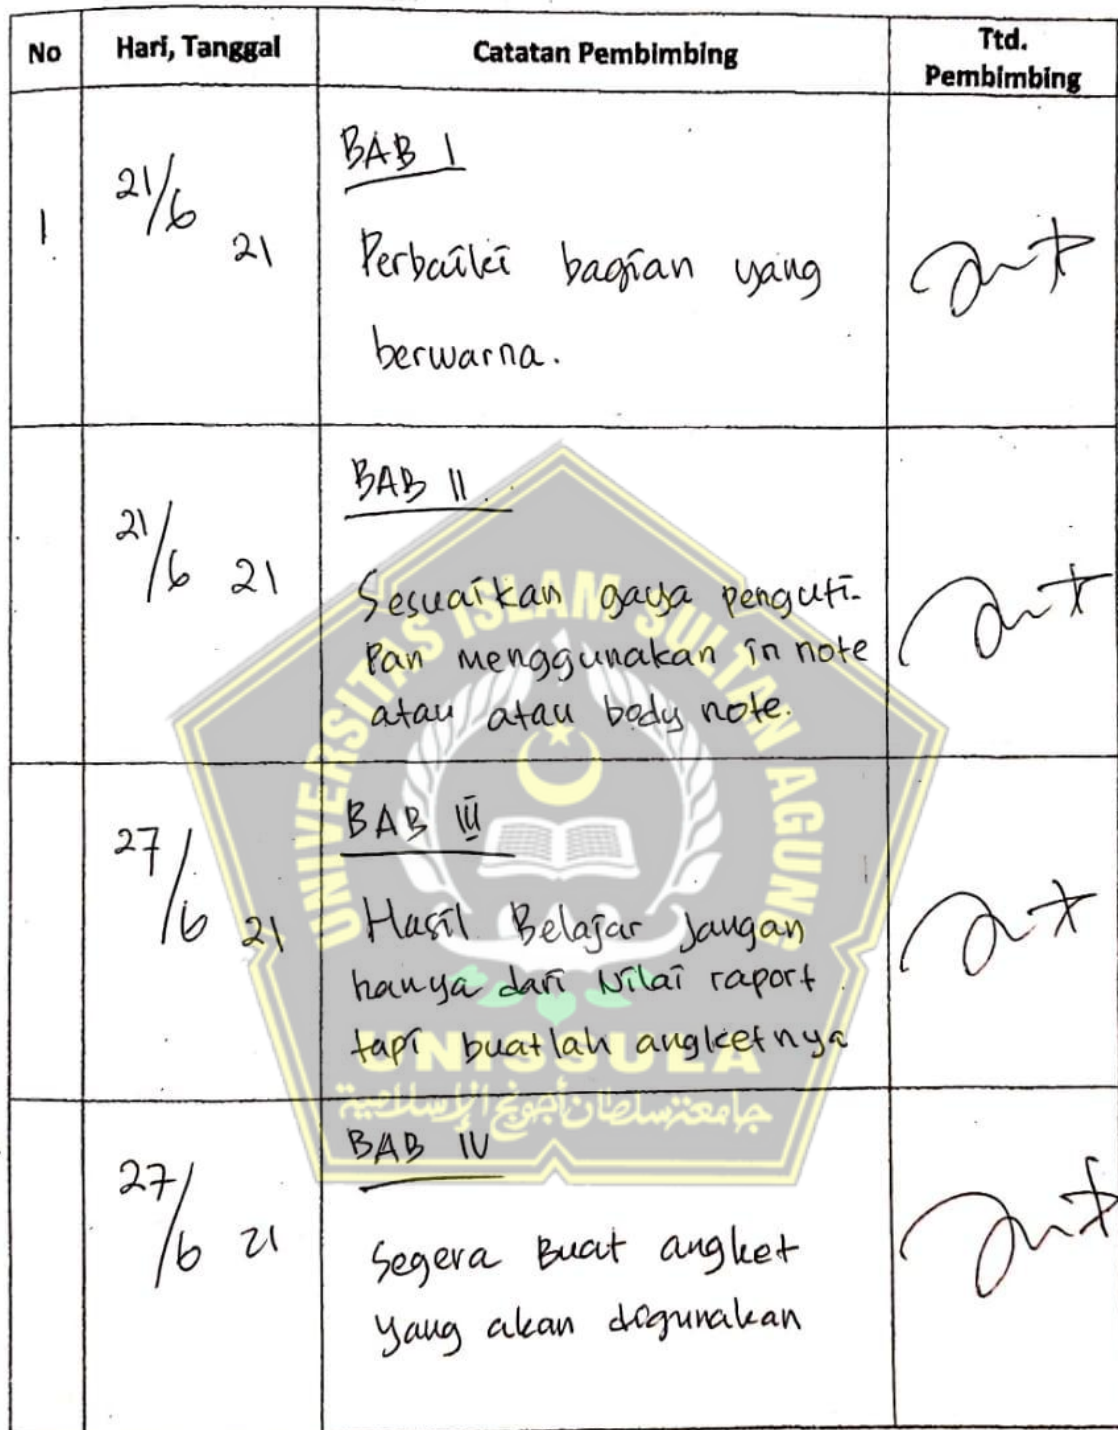 No Hari, Tanggal Catatan Pembimbing Ttd. Pembimbing
1 21/6 21 BAB I
Perbaiki bagian yang
berwarna.
21/6 21 BAB II.
Sesuaikan gaya penguti-
pan menggunakan in note
atau atau body note.
27/6 21 BAB III
Hasil Belajar Jangan
hanya dari Nilai raport
tapi buatlah angketnya
27/6 21 BAB IV
Segera Buat angket
yang akan digunakan
UNIVERSITAS ISLAM SULTAN AGUNG
UNISSULA
جامعة سلطان أجونج الإسلامية